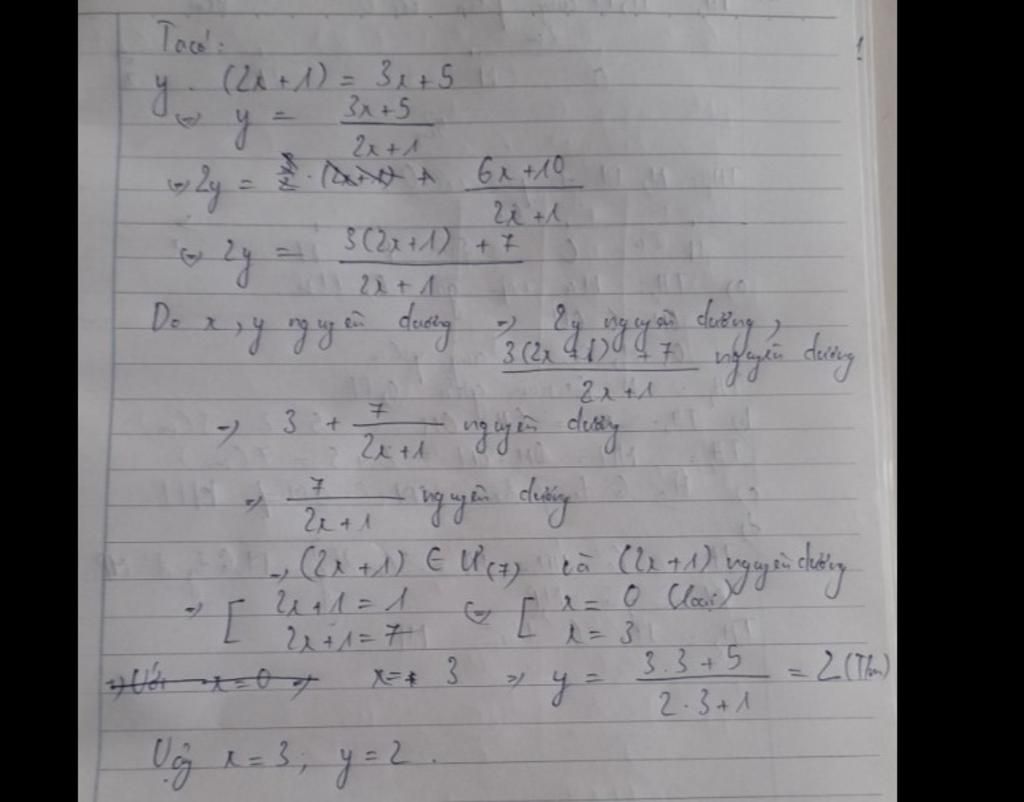 Ta có:
y. (2x+1) = 3x+5
⇔ y = (3x+5)/(2x+1)
⇔ 2y = (6x+10)/(2x+1)
⇔ 2y = (3(2x+1) + 7)/(2x+1)
Do x, y nguyên dương ⇒ 2y nguyên dương,
(3(2x+1) + 7)/(2x+1) nguyên dương
⇒ 3 + 7/(2x+1) nguyên dương
⇒ 7/(2x+1) nguyên dương
⇒ (2x+1) ∈ Ư(7) và (2x+1) nguyên dương
⇒ [ 2x+1=1 ⇔ [ x = 0 (loại)
2x+1=7 x = 3
⇒ Với x=0 ⇒ x= 3 ⇒ y = (3.3+5)/(2.3+1) = 2 (Tm)
Vậy x=3; y=2.